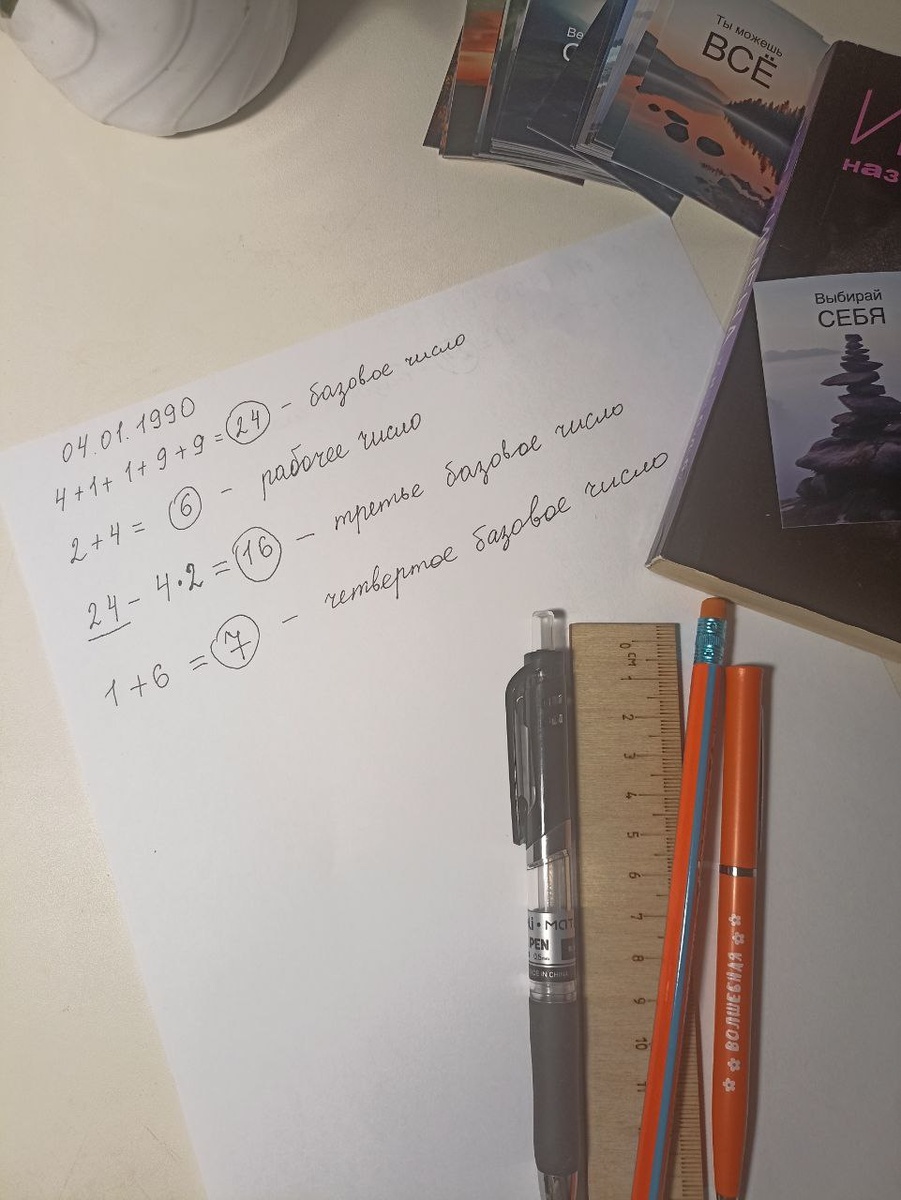 Ты можешь
ВСЁ
Ве
наз
Выбирай
СЕБЯ
04.01.1990
4+1+1+9+9=24 - базовое число
2+4= 6 - рабочее число
24 - 4·2 = 16 - третье базовое число
1+6 = 7 - четвертое базовое число
0 см
1
2
3
4
5
6
7
8
9
10
11
PEN
0.5mm
E IN CHINA
ВОЛШЕБНАЯ